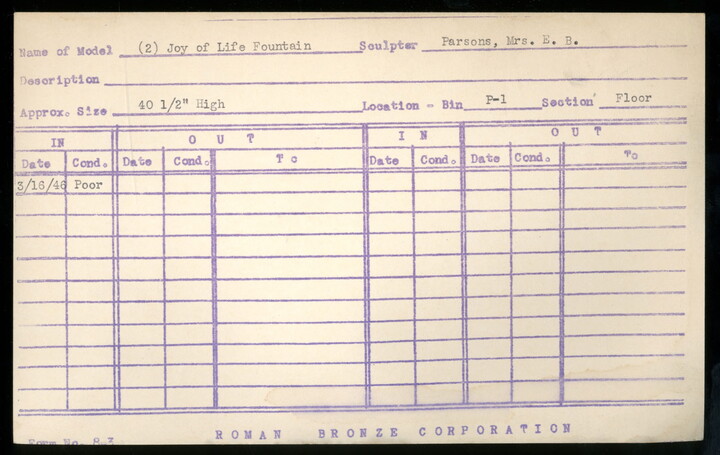 Name of Model (2) Joy of Life Fountain Sculptor Parsons, Mrs. E. B.
Description
Approx. Size 40 1/2" High Location - Bin P-1 Section Floor
IN OUT IN OUT
Date Cond. Date Cond. To Date Cond. Date Cond. To
3/16/46 Poor
Form No. R-3
ROMAN BRONZE CORPORATION